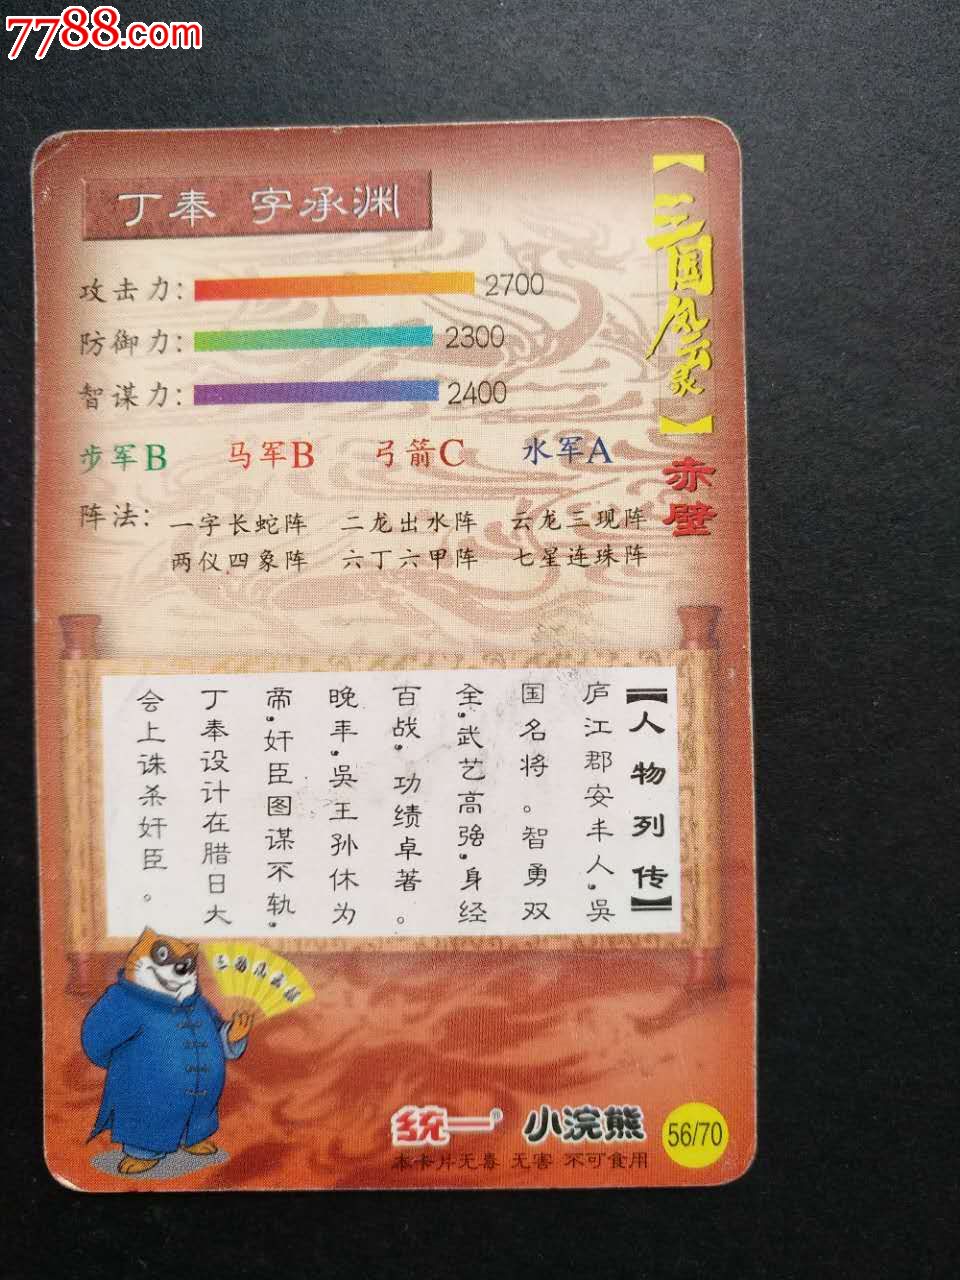 7788.com
丁奉 字承渊
【三国风云录】
赤壁
攻击力: 2700
防御力: 2300
智谋力: 2400
步军B 马军B 弓箭C 水军A
阵法: 一字长蛇阵 二龙出水阵 云龙三现阵
两仪四象阵 六丁六甲阵 七星连珠阵
【人物列传】
庐江郡安丰人,吴
国名将。智勇双
全,武艺高强,身经
百战,功绩卓著。
晚年,吴王孙休为
帝,奸臣图谋不轨,
丁奉设计在腊日大
会上诛杀奸臣。
三国风云录
统一® 小浣熊
本卡片无毒 无害 不可食用
56/70